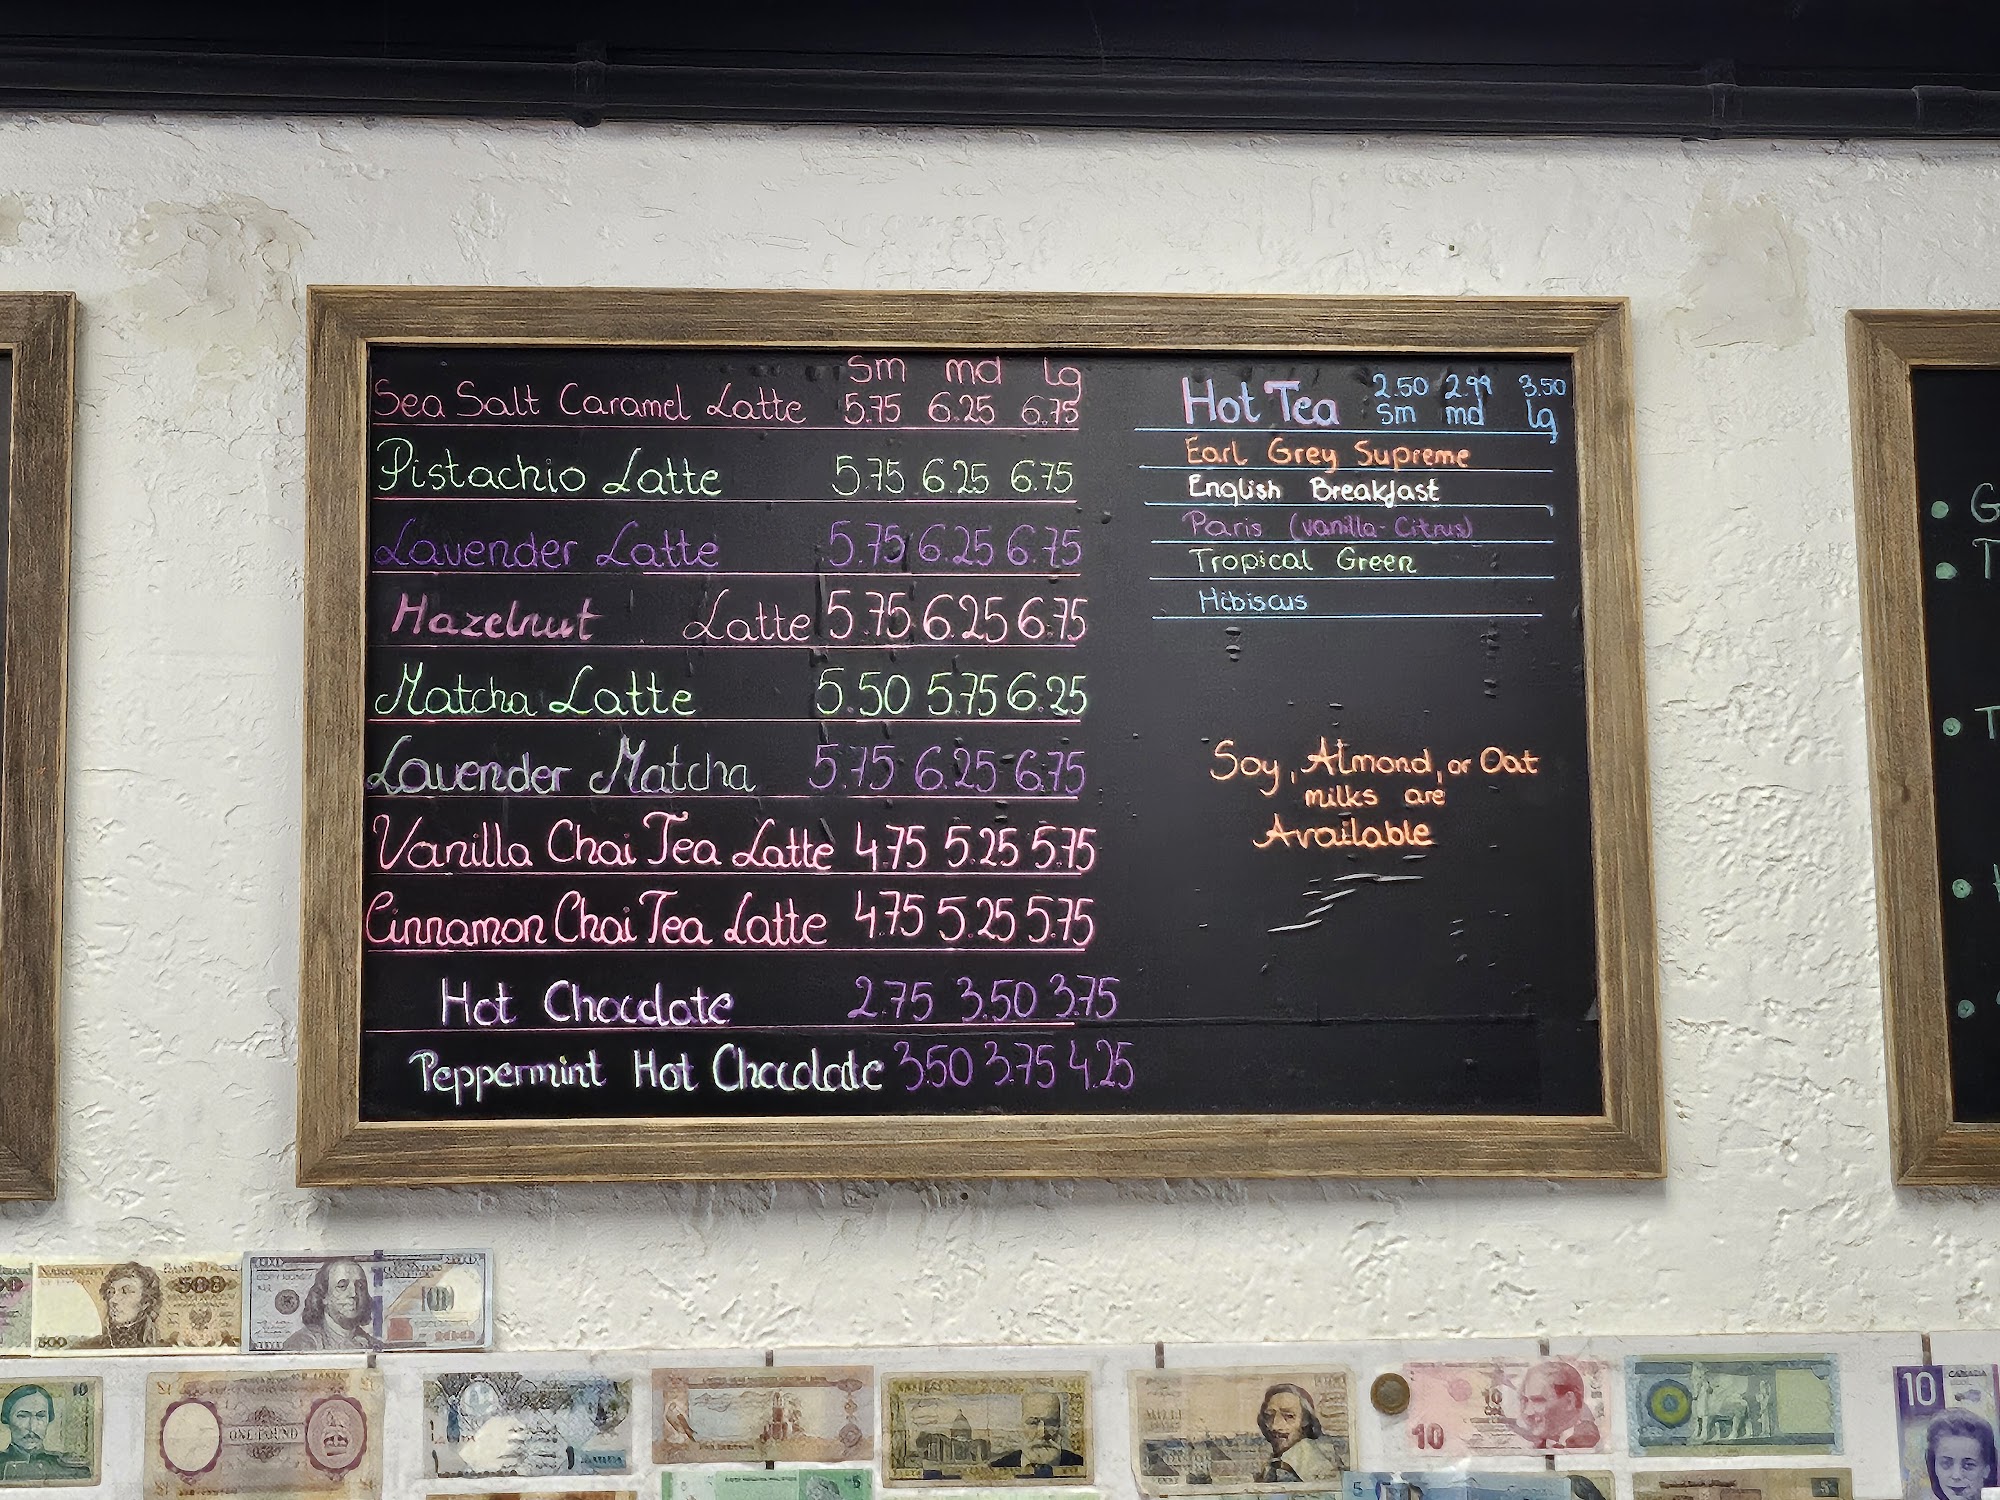 Sm md lg
Sea Salt Caramel Latte 5.75 6.25 6.75
Pistachio Latte 5.75 6.25 6.75
Lavender Latte 5.75 6.25 6.75
Hazelnut Latte 5.75 6.25 6.75
Matcha Latte 5.50 5.75 6.25
Lavender Matcha 5.75 6.25 6.75
Vanilla Chai Tea Latte 4.75 5.25 5.75
Cinnamon Chai Tea Latte 4.75 5.25 5.75
Hot Chocolate 2.75 3.50 3.75
Peppermint Hot Chocolate 3.50 3.75 4.25
Hot Tea 2.50 2.99 3.50
Sm md lg
Earl Grey Supreme
English Breakfast
Paris (vanilla-Citrus)
Tropical Green
Hibiscus
Soy, Almond, or Oat
milks are
Available
G
T
T
500
500
100
100
10
ONE POUND
10
10
CANADA
10
5
5